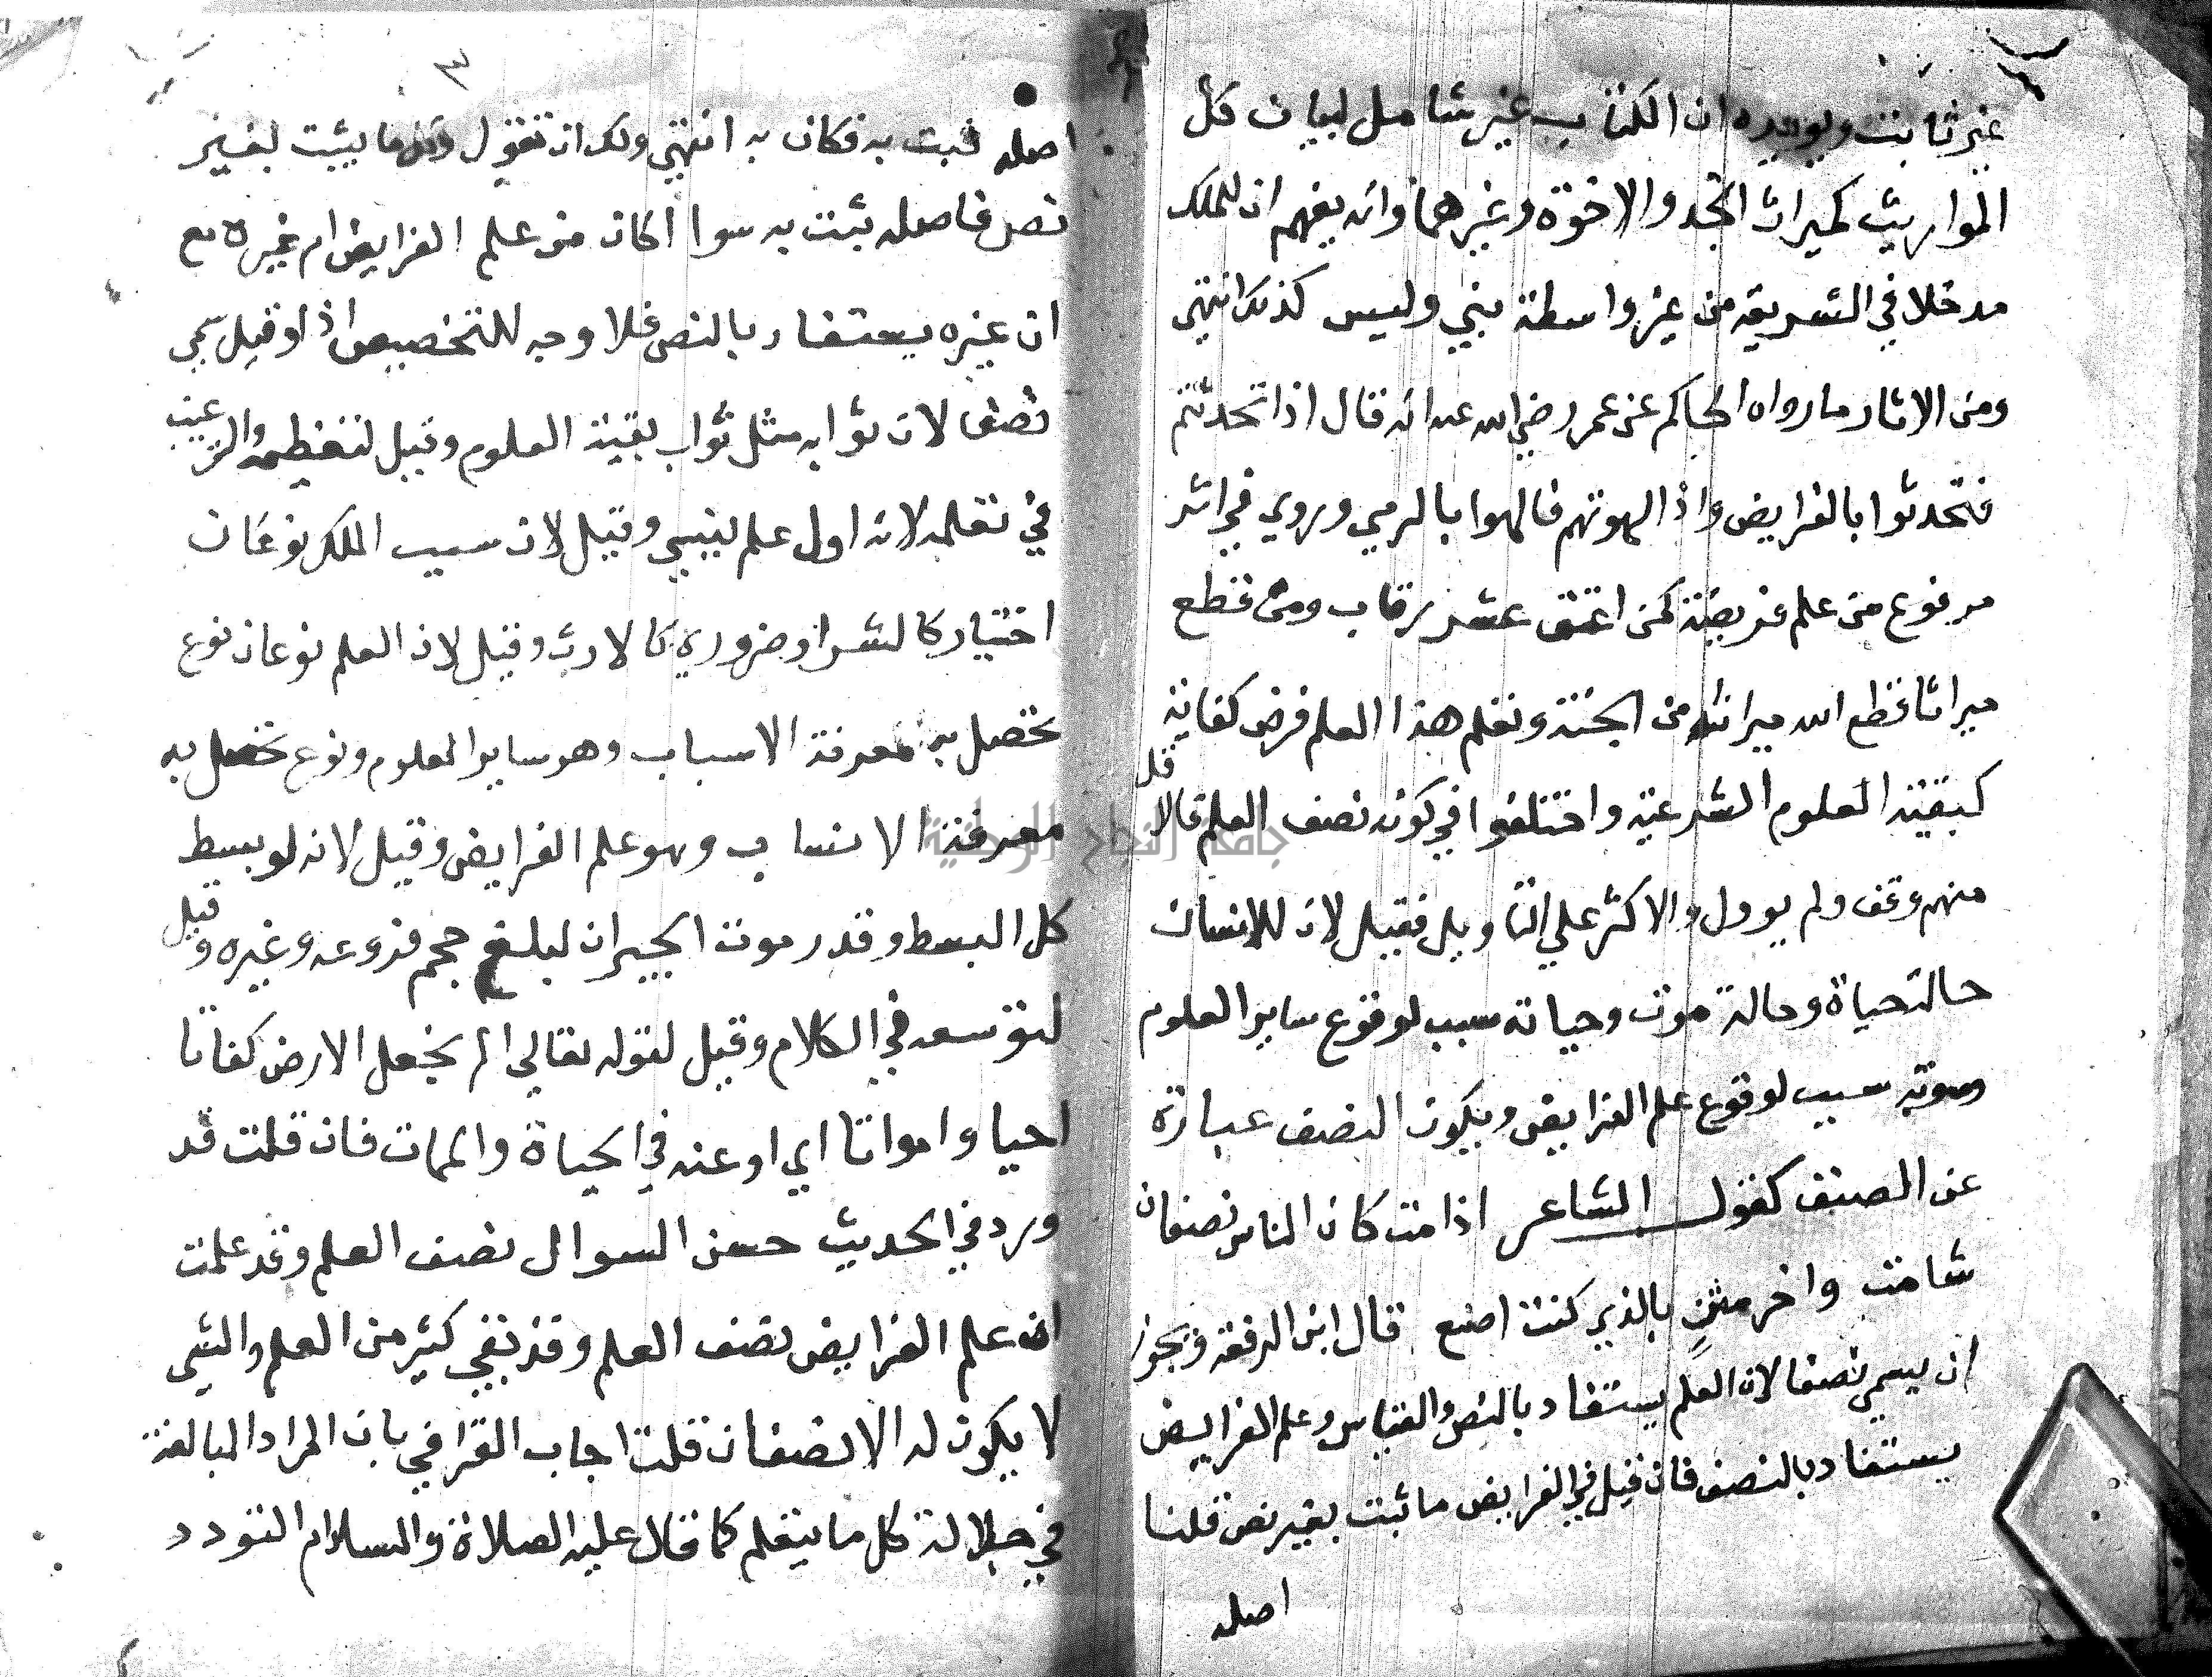 غير ثابت ويوهم ان الكتاب غير شامل لبيان كل
المواريث كميراث الجد والاخوة وغيرهما وانه يفهم ان للملك
مدخلا في الشريعة من غير واسطة نبي وليس كذلك انتهى
ومن الاثار ما رواه الحاكم عن عمر رضي الله عنه انه قال اذا تحدثتم
فتحدثوا بالفرايض واذا لهوتم فالهوا بالرمي وروي في اثر
مرفوع من علم فريضة كمن اعتق عشر رقاب ومن قطع
ميراثا قطع الله ميراثه من الجنة وتعلم هذا العلم فرض كفاية
كبقية العلوم الشرعية واختلفوا في كونه نصف العلم فالاقل
منهم وقف ولم يوول والاكثر على التاويل فقيل لان للانسان
حالة حياة وحالة موت وحياته سبب لوقوع ساير العلوم
وموته سبب لوقوع علم الفرايض ويكون النصف عبارة
عن الصنف كقول الشاعر اذا مت كان الناس نصفان
شامت واخر مثن بالذي كنت اصنع قال ابن الرفعة ويجوز
ان يسمى نصفا لان العلم يستفاد بالنص والقياس وعلم الفرايض
يستفاد بالنصف فان قيل في الفرايض ما ثبت بغير نص قلنا
اصله
٣
اصله ثبت به فكان به انتهى ولك ان تقول وكل ما يثبت بغير
نص فاصله ثبت به سوا اكان من علم الفرايض ام غيره مع
ان غيره يستفاد بالنص فلا وجه للتخصيص اذا وقيل سمي
نصفا لان ثوابه مثل ثواب بقية العلوم وقيل لتعظيمه والترغيب
في تعلمه لانه اول علم ينسى وقيل لان سبب الملك نوعان
اختيار كالشرا وضروري كالارث وقيل لان العلم نوعان نوع
تحصل به معرفة الاسباب وهو ساير العلوم ونوع تحصل به
معرفة الانساب وهو علم الفرايض وقيل لانه لو بسط
كل البسط وقدر موت الجيران لبلغ حجم فروعه وغيره وقيل
لتوسعه في الكلام وقيل لقوله تعالى الم نجعل الارض كفاتا
احيا وامواتا اي اوعيه في الحياة والممات فان قلت قد
ورد في الحديث حسن السوال نصف العلم وقد علمت
ان علم الفرايض نصف العلم وقد بقي كثير من العلم والشي
لا يكون له الا نصفان قلت اجاب القرافي بان المراد المبالغة
في جلالة كل ما يتعلم كما قال عليه الصلاة والسلام التودد
جامعة النجاح الوطنية